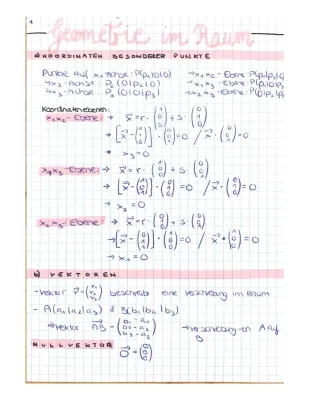 1
Geometrie im Raum
a) KOORDINATEN BESONDERER PUNKTE
Punkte auf x₁-Achse: P(p₁|0|0) → x₁x₂-Ebene: P(p₁|p₂|0)
↳x₂-Achse: P₂(0|p₂|0) → x₁x₃-Ebene: P(p₁|0|p₃)
↳x₃-Achse: P₃(0|0|p₃) → x₂x₃-Ebene: P(0|p₂|p₃)
Koordinatenebenen:
x₁x₂-Ebene: → x⃗ = r·(1 0 0) + s·(0 1 0)
→ x₃ = 0
x₁x₃-Ebene: → x⃗ = r·(1 0 0) + s·(0 0 1)
→ x₂ = 0
x₂x₃-Ebene: → x⃗ = r·(0 1 0) + s·(0 0 1)
→ x₁ = 0
b) VEKTOREN
-Vektor v⃗ = (v₁ v₂ v₃) beschreibt eine Verschiebung im Raum
- A(a₁|a₂|a₃) & B(b₁|b₂|b₃)
→Vektor AB⃗ = (b₁-a₁ b₂-a₂ b₃-a₃) →Verschiebung von A auf B
NULLVEKTOR
0⃗ = (0 0 0)